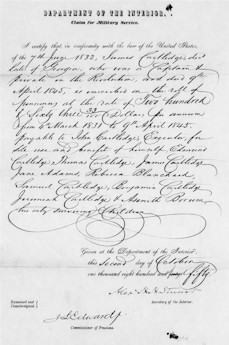 DEPARTMENT OF THE INTERIOR,
Claim for Military Service.
I certify that in conformity with the law of the United States,
of the 7th June 1832, James Cartledge, dec
late of Georgia, who was a Captain &
private in the Revolution, and died 9th
April 1845, is inscribed on the roll of
at the rate of Two hundred
& Sixty three 33/100 Dollars per annum
from 4 March 1831 to 9th April 1845.
payable to John Cartledge, Executor, for
the use and benefit of himself, Edmund
Cartledge, Thomas Cartledge, James Cartledge
Jane Adams, Rebecca Blanchard
Samuel Cartledge, Benjamin Cartledge
Jeremiah Cartledge &
the only surviving Children
Given at the Department of the Interior,
this second day of October
one thousand eight hundred and fifty
Alex. H. H. Stuart
Secretary of the Interior.
Examined and
Countersigned
J. L. Edwards
Commissioner of Pensions.